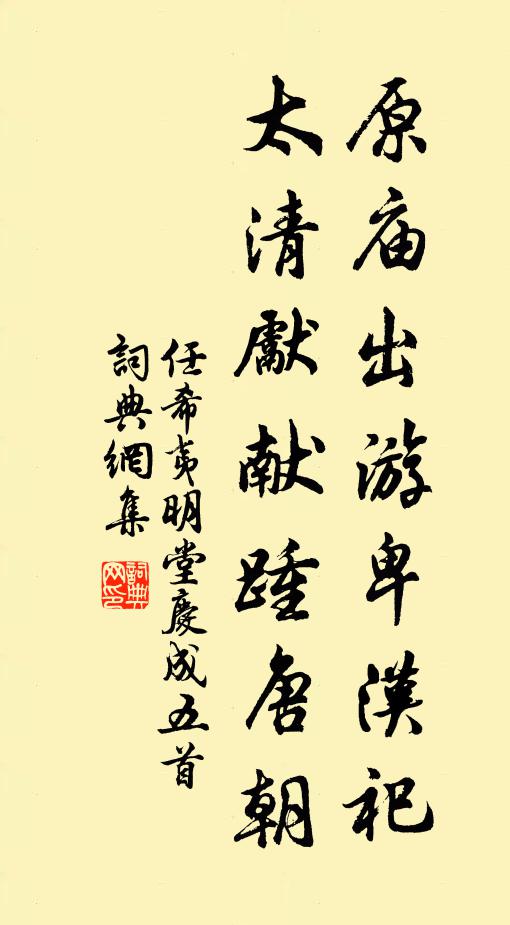 原庙出游卑漢祀
太清獻献踵唐朝
任希夷明堂慶成五首
詞典網集
詞典网印